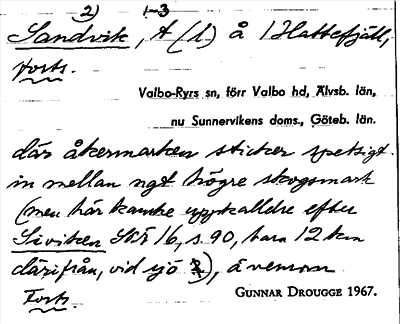 2) 1-3
Sandvik, t (l) å 1 Hattefjäll,
forts.
Valbo-Ryrs sn, förr Valbo hd, Älvsb. län,
nu Sunnervikens doms., Göteb. län.
där åkermarken sticker spetsigt
in mellan ngt högre skogsmark
(men här kanske uppkalldre efter
Siviken SOÄ 16, s. 90, bara 12 km
därifrån, vid sjö), ävensom
Forts. GUNNAR DROUGGE 1967.